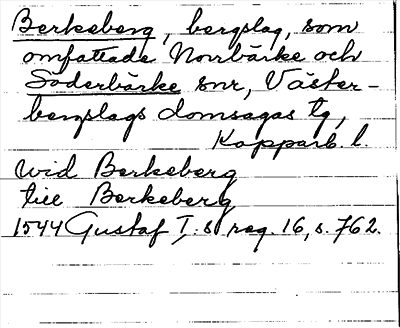 Berkeberg, bergslag, som
omfattade Norrbärke och
Söderbärke snr, Väster-
bergslags domsagas tg,
Kopparb. l.
wid Berkeberg
till Berkeberg
1544 Gustaf I:s reg. 16, s. 762.